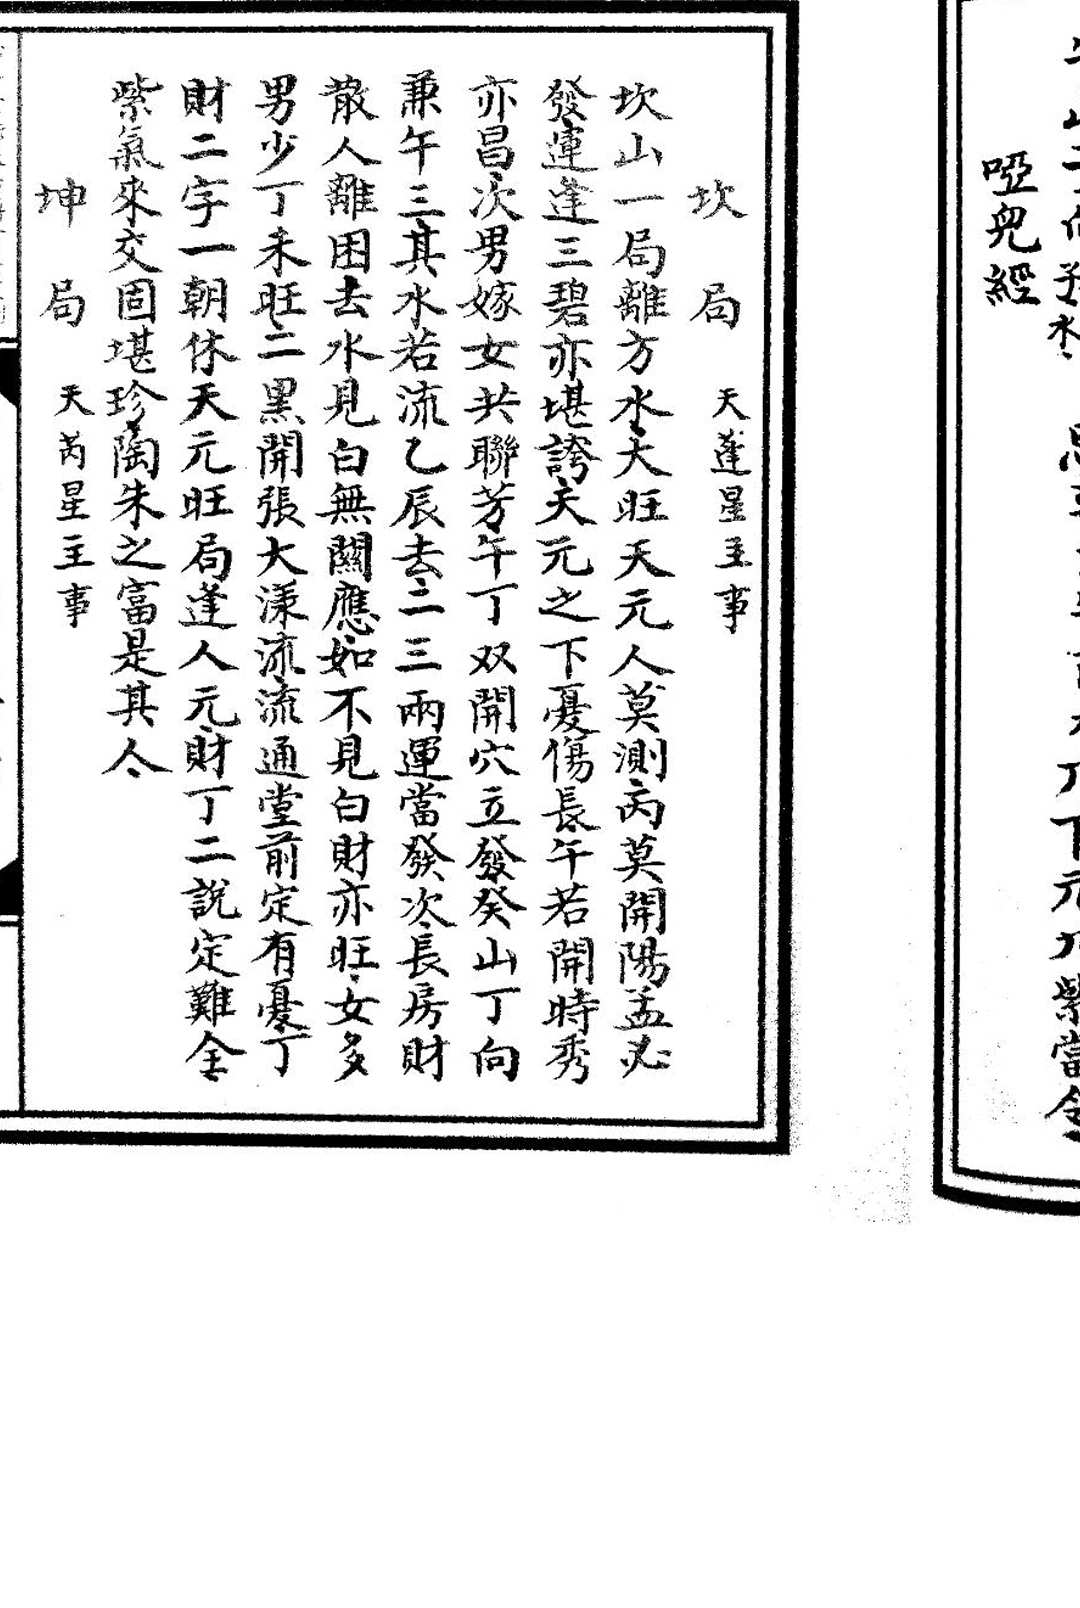 啞兒經
坎局 天蓬星主事
坎山一局離方水大旺天元人莫測丙莫開陽孟必
發運逢三碧亦堪誇天元之下憂傷長午若開時秀
亦昌次男嫁女共聯芳午丁双開穴立發癸山丁向
兼午三其水若流乙辰去二三兩運當發次長房財
散人離困去水見白無關應如不見白財亦旺女多
男少丁未旺二黑開張大漾流流通堂前定有憂丁
財二字一朝休天元旺局逢人元財丁二說定難全
紫氣來交固堪珍陶朱之富是其人
坤局 天芮星主事